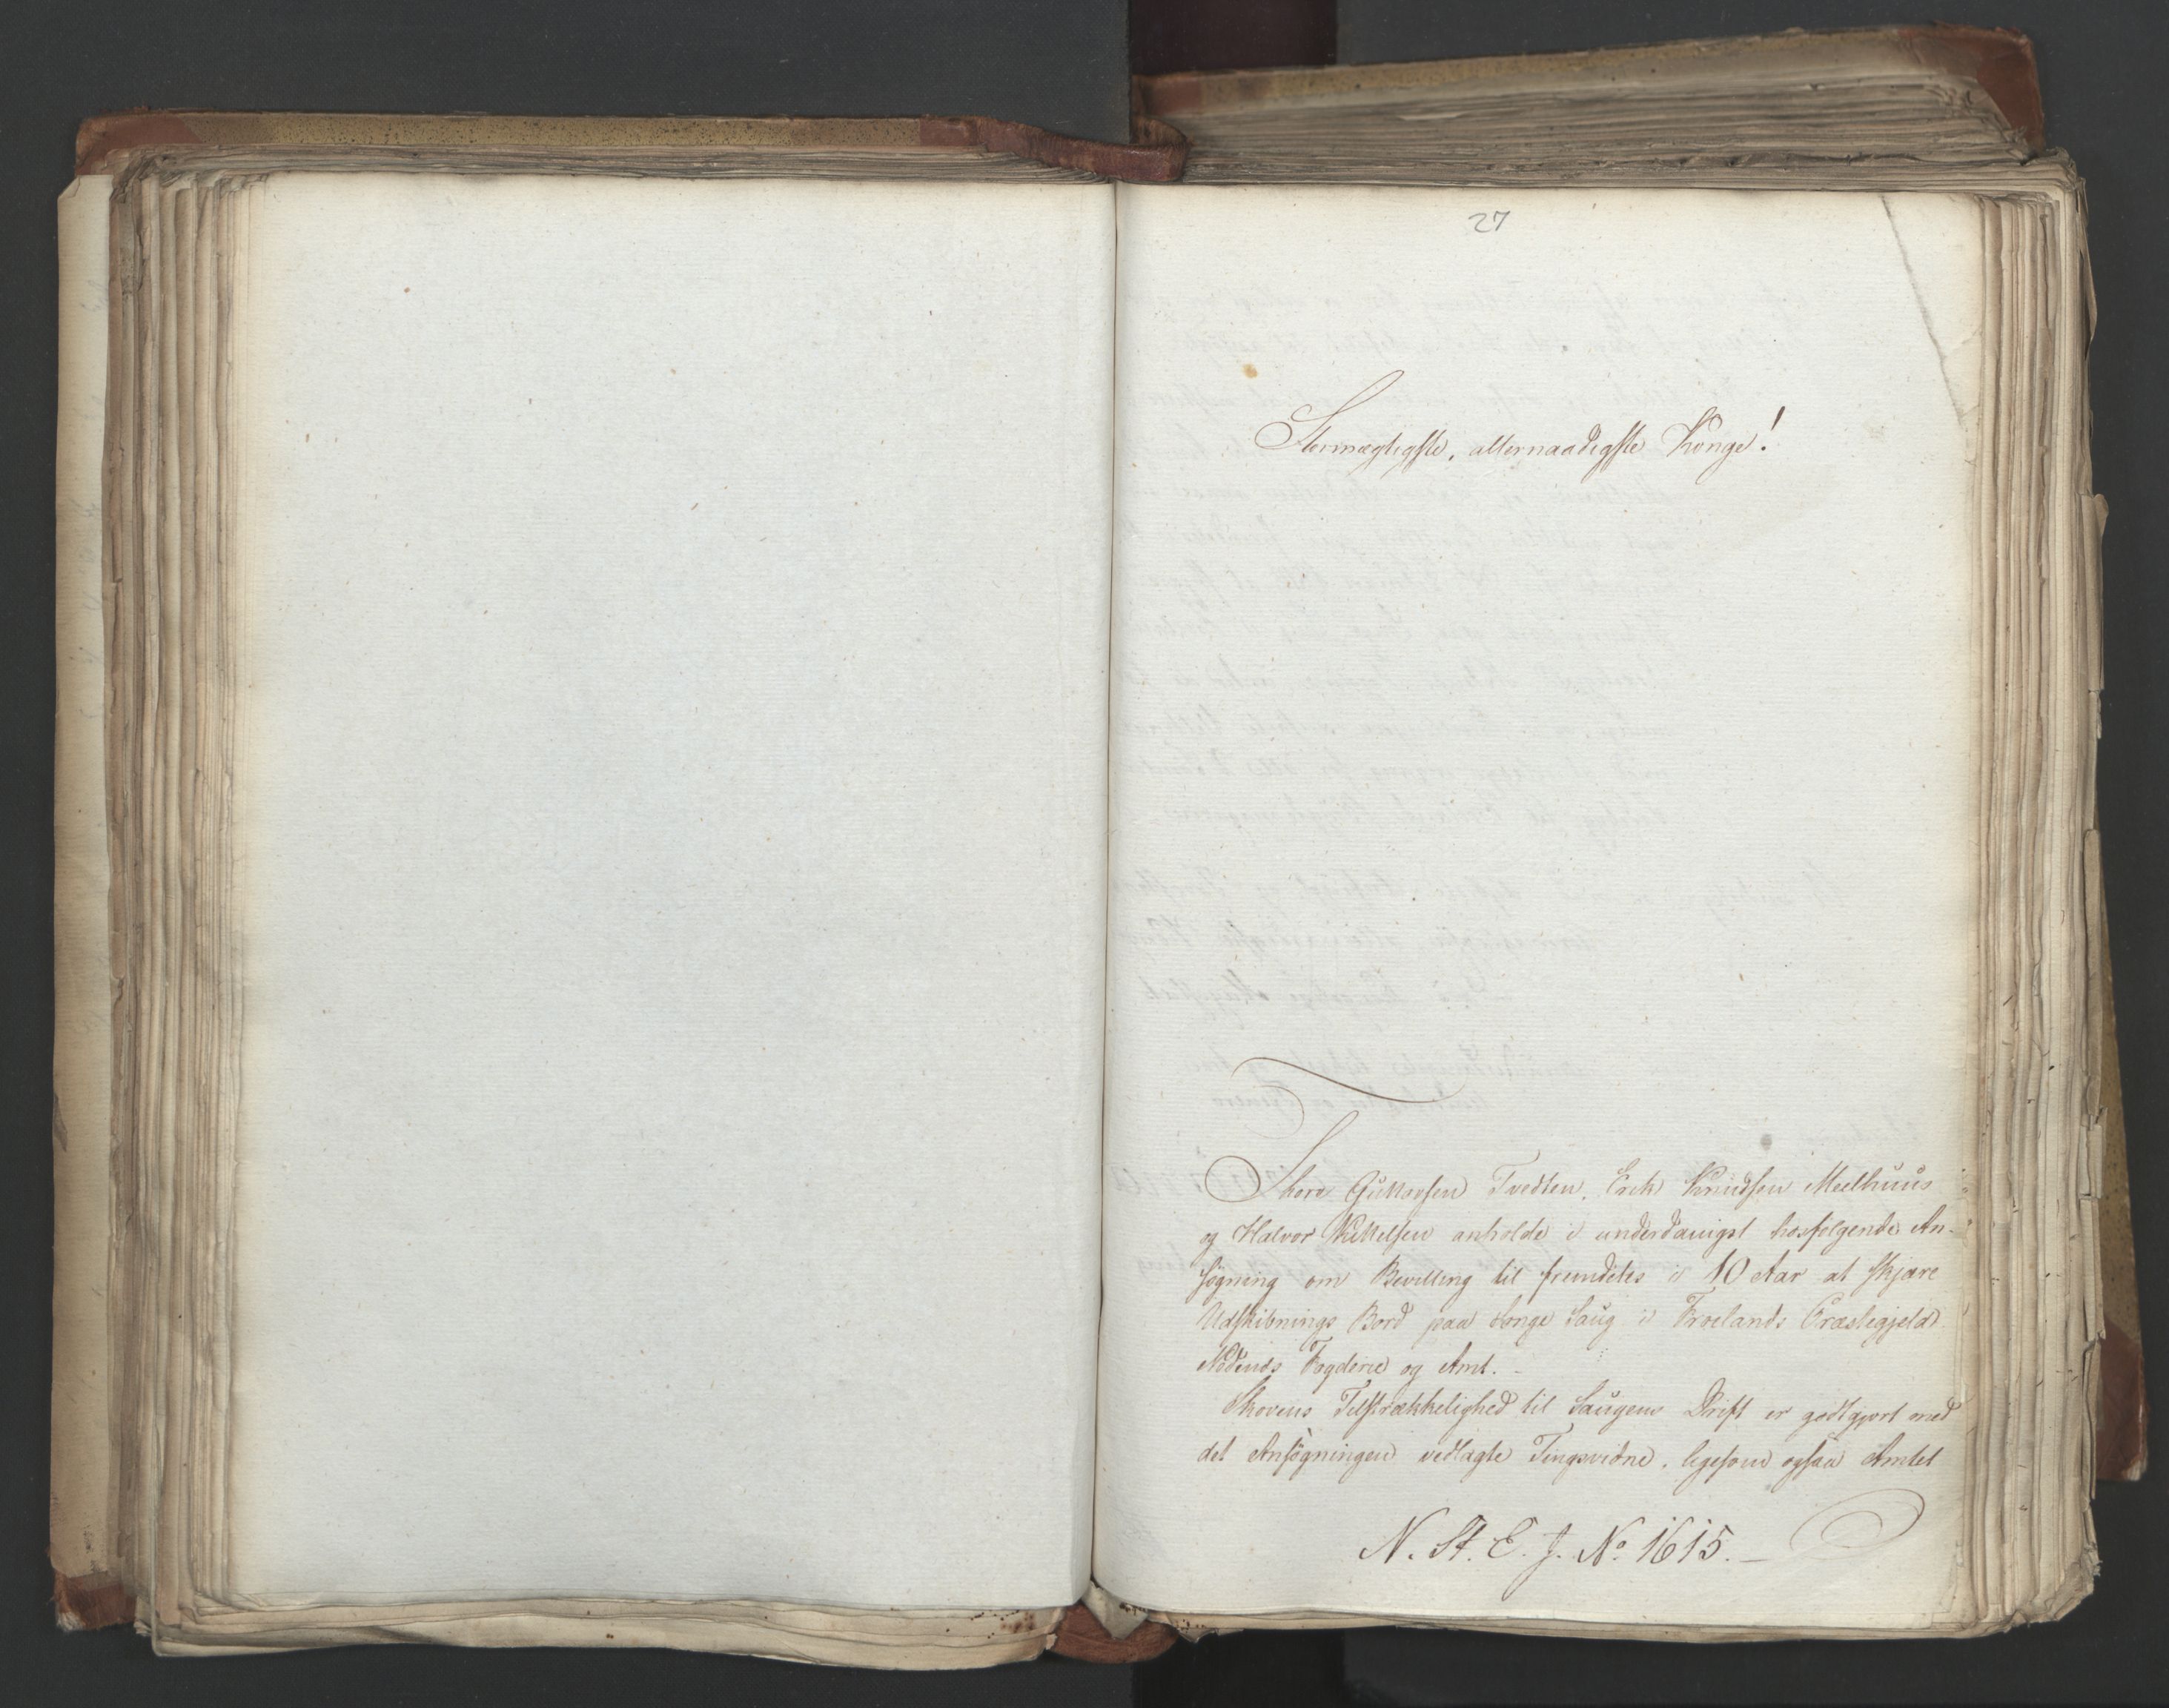 27
Stormægtigste, allernaadigste Konge!
Thore Guttorfsen Tvedten, Erik Knudsen Meelhuus
og Halvor Kittelsen anholde i underdanigst hosfølgende An-
søgning om Bevilling til fremdeles i 10 Aar at skjære
Udskibnings Bord paa Songe Saug i Froelands Præstegjeld
Nedenæs Fogderie og Amt. -
Skovens Tilstrækkelighed til Saugens Drift er godtgjort med
det Ansøgningen vedlagte Tingsvidne, ligesom ogsaa Amtet
N. St. E. J. No 1615. -